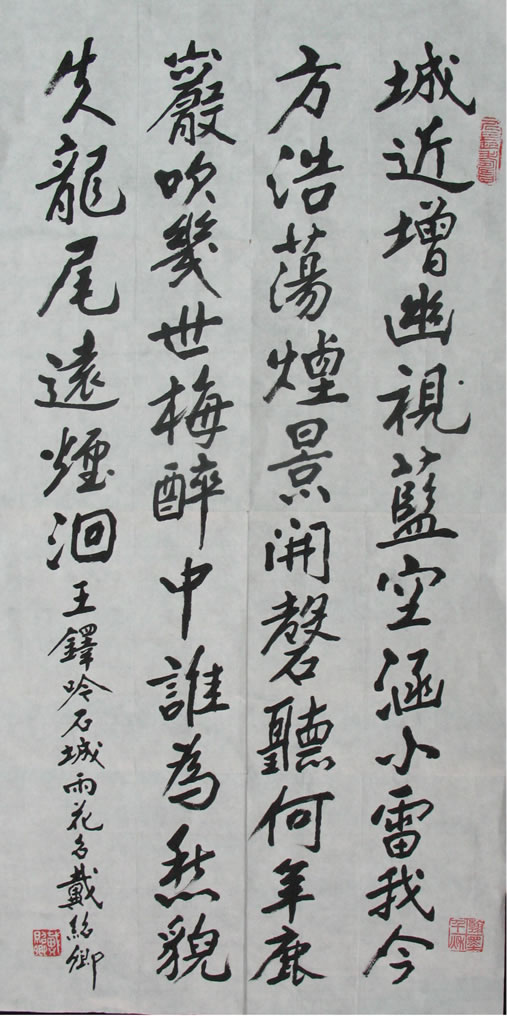 城近增幽視藍空涵小雷我今
方浩蕩煙景開磬聽何年鹿
巖吹幾世梅醉中誰為愁貌
失龍尾遠煙洄
王鐸吟石城雨花 戴紹卿